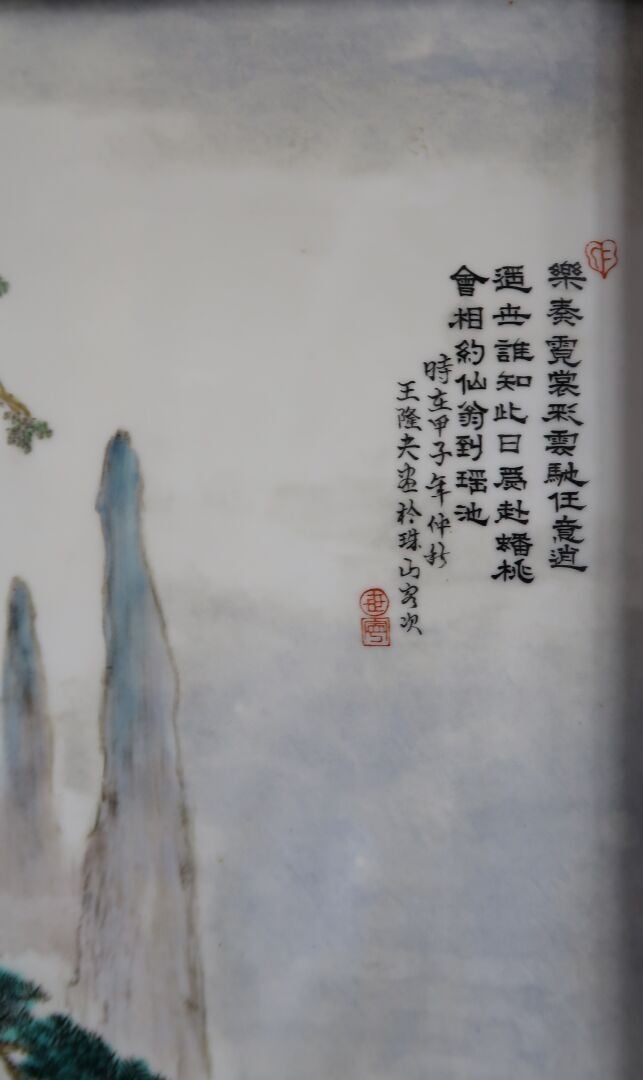 樂奏霓裳彩雲馳任意逍
遥世誰知此日爲赴蟠桃
會相約仙翁到瑶池
時在甲子年仲秋
王隆夫畫於珠山客次